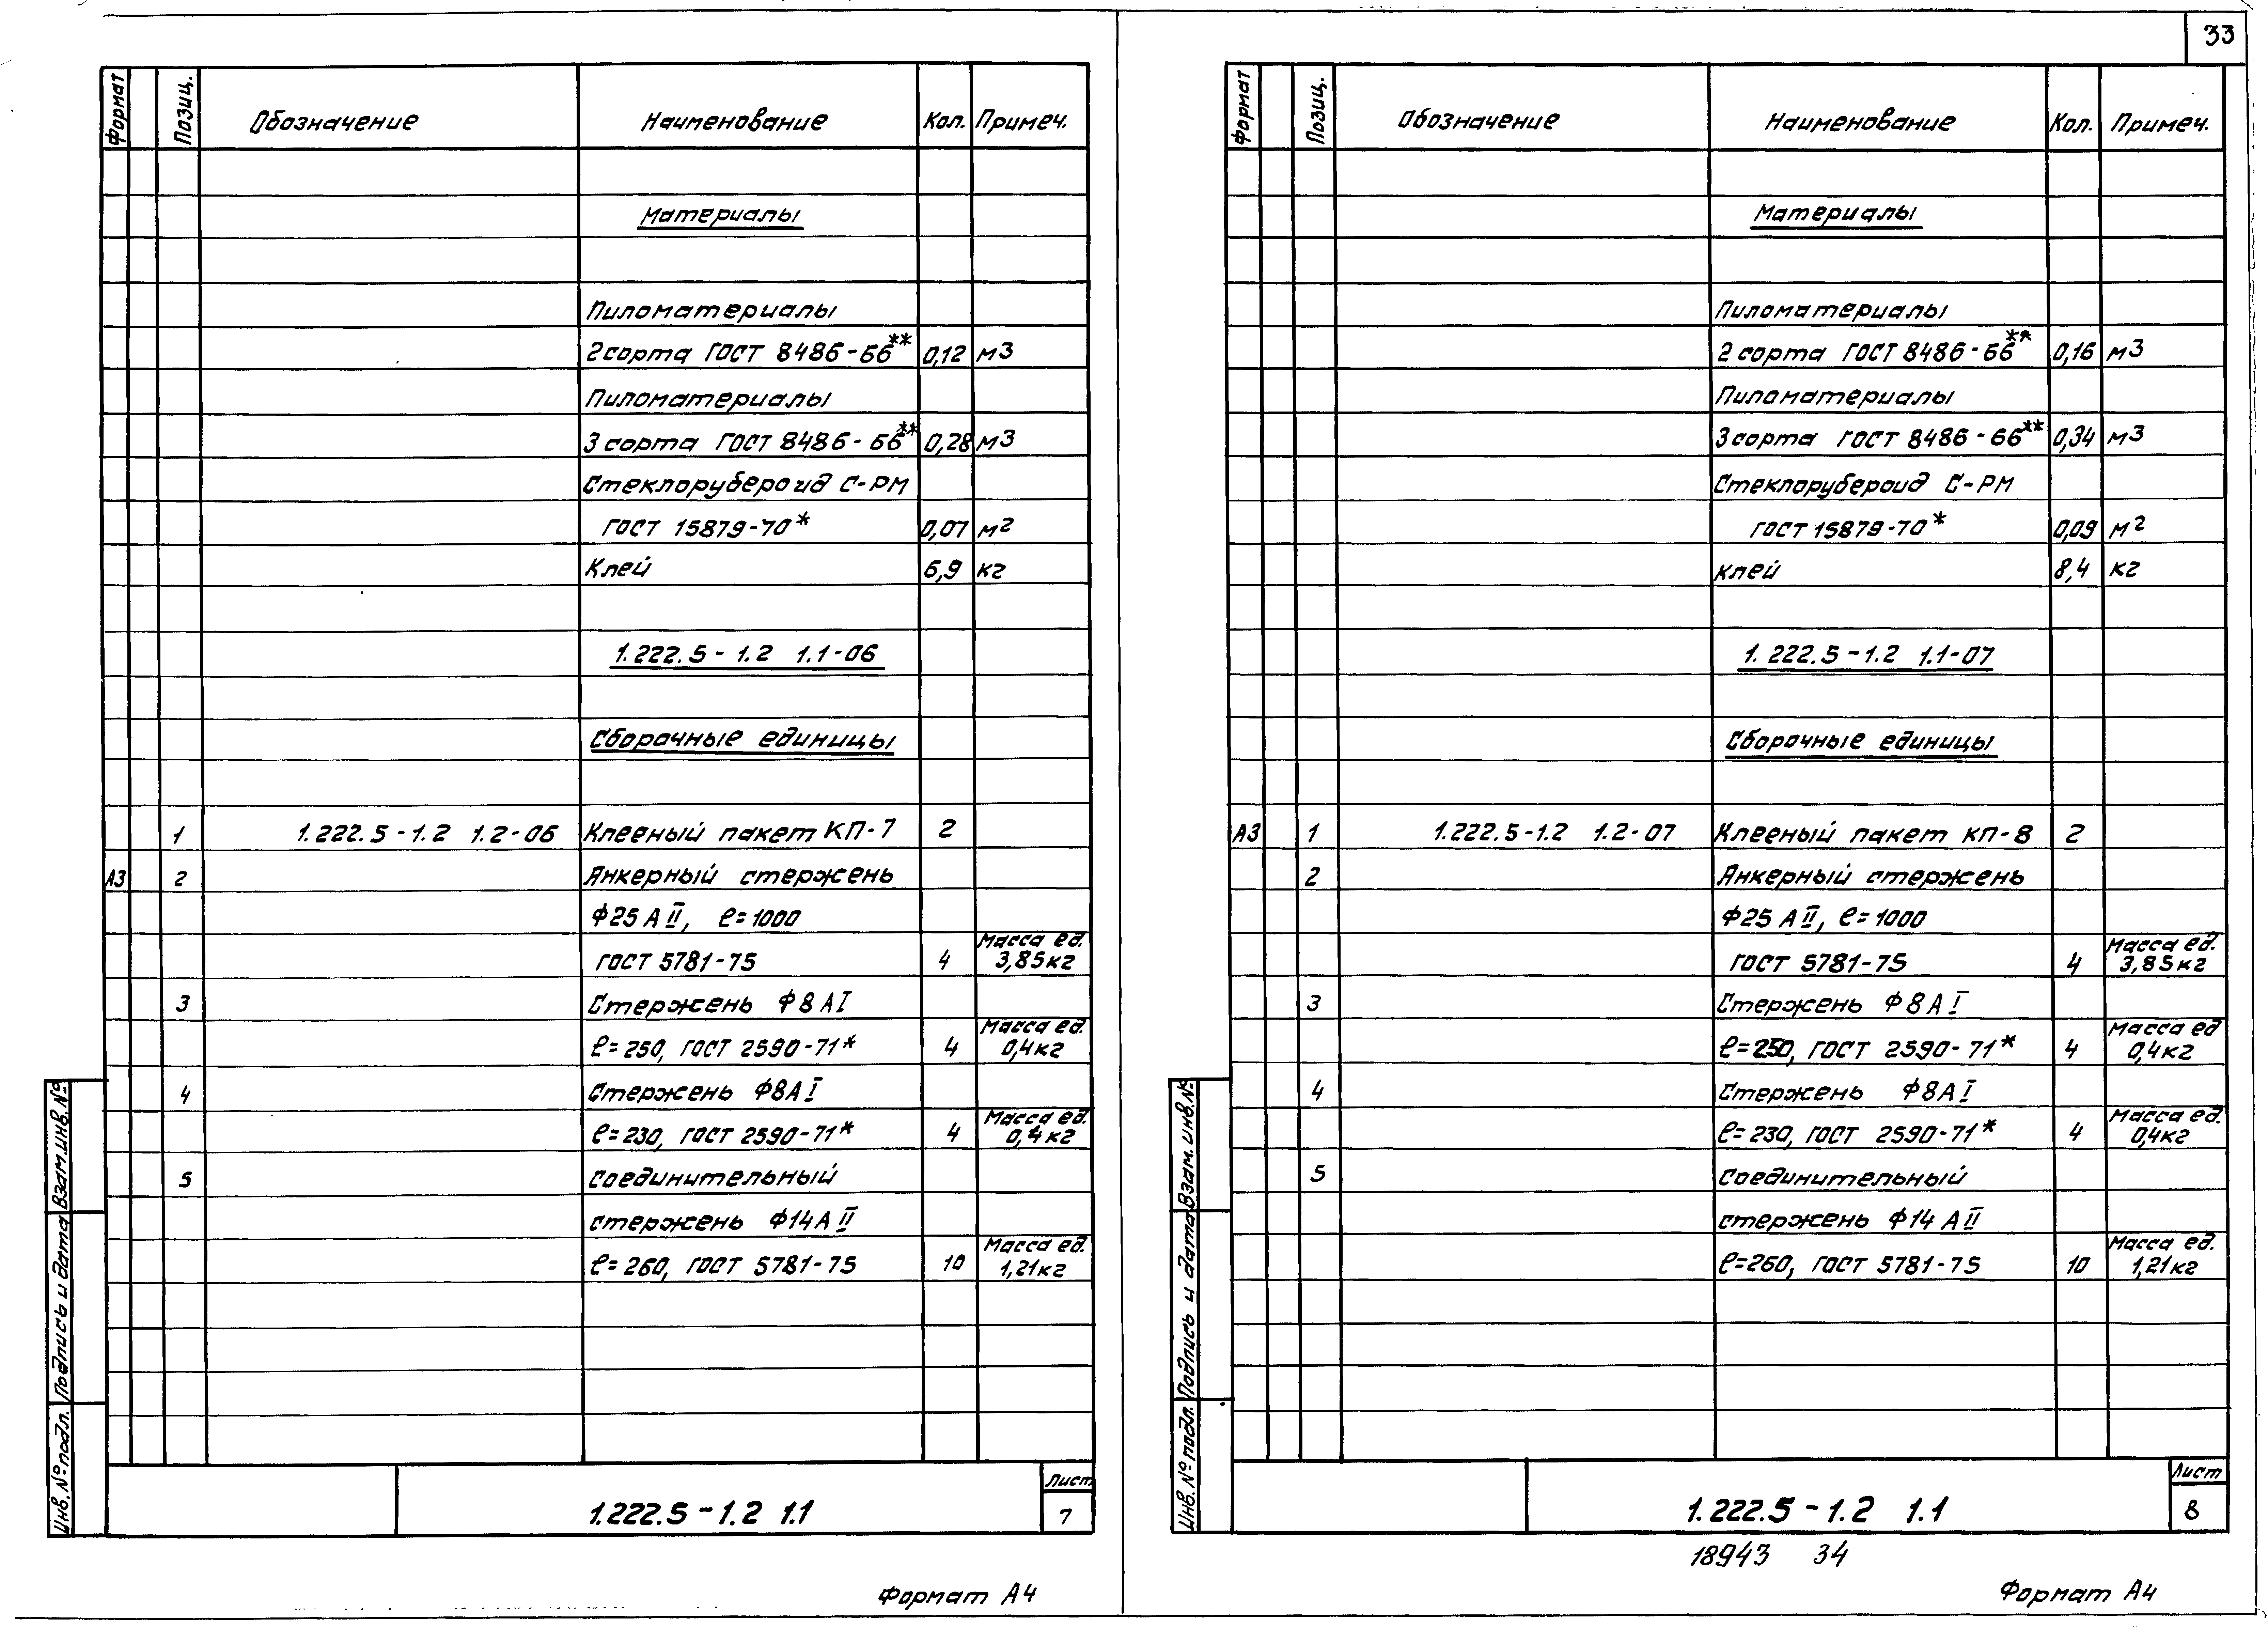 33
Формат Позиц. Обозначение Наименование Кол. Примеч.
Материалы
Пиломатериалы
2 сорта ГОСТ 8486-66** 0,12 м3
Пиломатериалы
3 сорта ГОСТ 8486-66** 0,28 м3
Стеклорубероид С-РМ
ГОСТ 15879-70* 0,07 м2
Клей 6,9 кг
1.222.5-1.2 1.1-06
Сборочные единицы
1 1.222.5-1.2 1.2-06 Клееный пакет КП-7 2
А3 2 Анкерный стержень
Ф25 АII, ℓ=1000
Масса ед.
ГОСТ 5781-75 4 3,85кг
3 Стержень Ф8АI
Масса ед.
ℓ=250, ГОСТ 2590-71* 4 0,4кг
4 Стержень Ф8АI
Масса ед.
ℓ=230, ГОСТ 2590-71* 4 0,4кг
5 Соединительный
стержень Ф14АII
Масса ед.
ℓ=260, ГОСТ 5781-75 10 1,21кг
Инв. №подл. Подпись и дата Взам.инв.№
1.222.5-1.2 1.1
Лист
7
Формат А4
Формат Позиц. Обозначение Наименование Кол. Примеч.
Материалы
Пиломатериалы
2 сорта ГОСТ 8486-66** 0,16 м3
Пиломатериалы
3 сорта ГОСТ 8486-66** 0,34 м3
Стеклорубероид С-РМ
ГОСТ 15879-70* 0,09 м2
клей 8,4 кг
1.222.5-1.2 1.1-07
Сборочные единицы
А3 1 1.222.5-1.2 1.2-07 Клееный пакет КП-8 2
2 Анкерный стержень
Ф25 АII, ℓ=1000
Масса ед.
ГОСТ 5781-75 4 3,85кг
3 Стержень Ф8АI
Масса ед
ℓ=250, ГОСТ 2590-71* 4 0,4кг
4 Стержень Ф8АI
Масса ед.
ℓ=230, ГОСТ 2590-71* 4 0,4кг
5 Соединительный
стержень Ф14 АII
Масса ед.
ℓ=260, ГОСТ 5781-75 10 1,21кг
Инв. №подл. Подпись и дата Взам.инв.№
1.222.5-1.2 1.1
Лист
8
18943 34
Формат А4